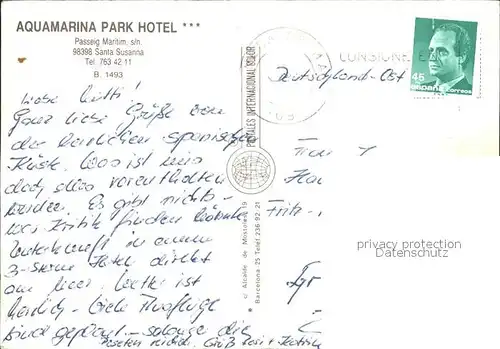 AQUAMARINA PARK HOTEL ***
Passeig Marítim, s/n.
98398 Santa Susanna
Tel. 763 42 11
B. 1493
Liebe Mutti!
Ganz liebe Grüße von
der herrlichen spanischen
Küste. Was ist uns
doch alles vorenthalten
worden. Es gibt nichts -
was Kritik finden könnte
Unterkunft in einem
3-Sterne Hotel direkt
am Meer. Wetter ist
herrlich - viele Ausflüge
sind geplant - solange die
Füße
POSTALES INTERNACIONAL COLOR
c/ Alcalde de Mostoles, 19
Barcelona 25 Telef. 236 92 21
CONSIGNE EL
45
españa correos
Deutschland-Ost
Frau
Fritz-
privacy protection
Datenschutz